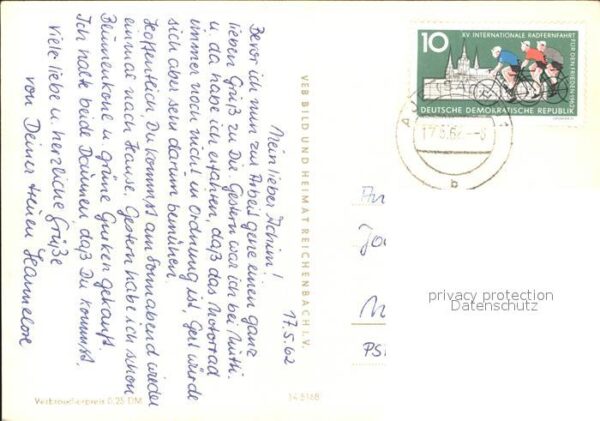 17.5.62
Mein lieber Achim!
Bevor ich nun zur Arbeit gehe einen ganz
lieben Gruß zu Dir. Gestern war ich bei Mutti
u. da habe ich erfahren, daß das Motorrad
immer noch nicht in Ordnung ist, Gert würde
sich aber sehr darum bemühen.
Hoffentlich, Du kommst am Sonnabend wieder
einmal nach Hause. Gestern habe ich schon
Blumenkohl u. grüne Gurken gekauft.
Ich halte beide Daumen, daß Du kommst.
Viele liebe u. herzliche Grüße
von Deiner treuen Hannelore
VEB BILD UND HEIMAT REICHENBACH I. V.
Verbraucherpreis 0,25 DM
10
XV. INTERNATIONALE RADFERNFAHRT
FÜR DEN FRIEDEN 1962
DEUTSCHE DEMOKRATISCHE REPUBLIK
b
An
PSF
privacy protection
Datenschutz